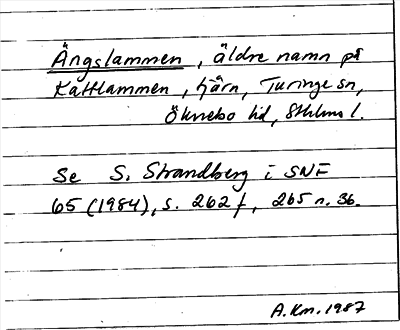 Ängslammen, äldre namn på
Kattlammen, tjärn, Turinge sn,
Öknebo hd, Sthlms l.
Se S. Strandberg i SNF
65 (1984), s. 262 f, 265 n. 36.
A.Km. 1987